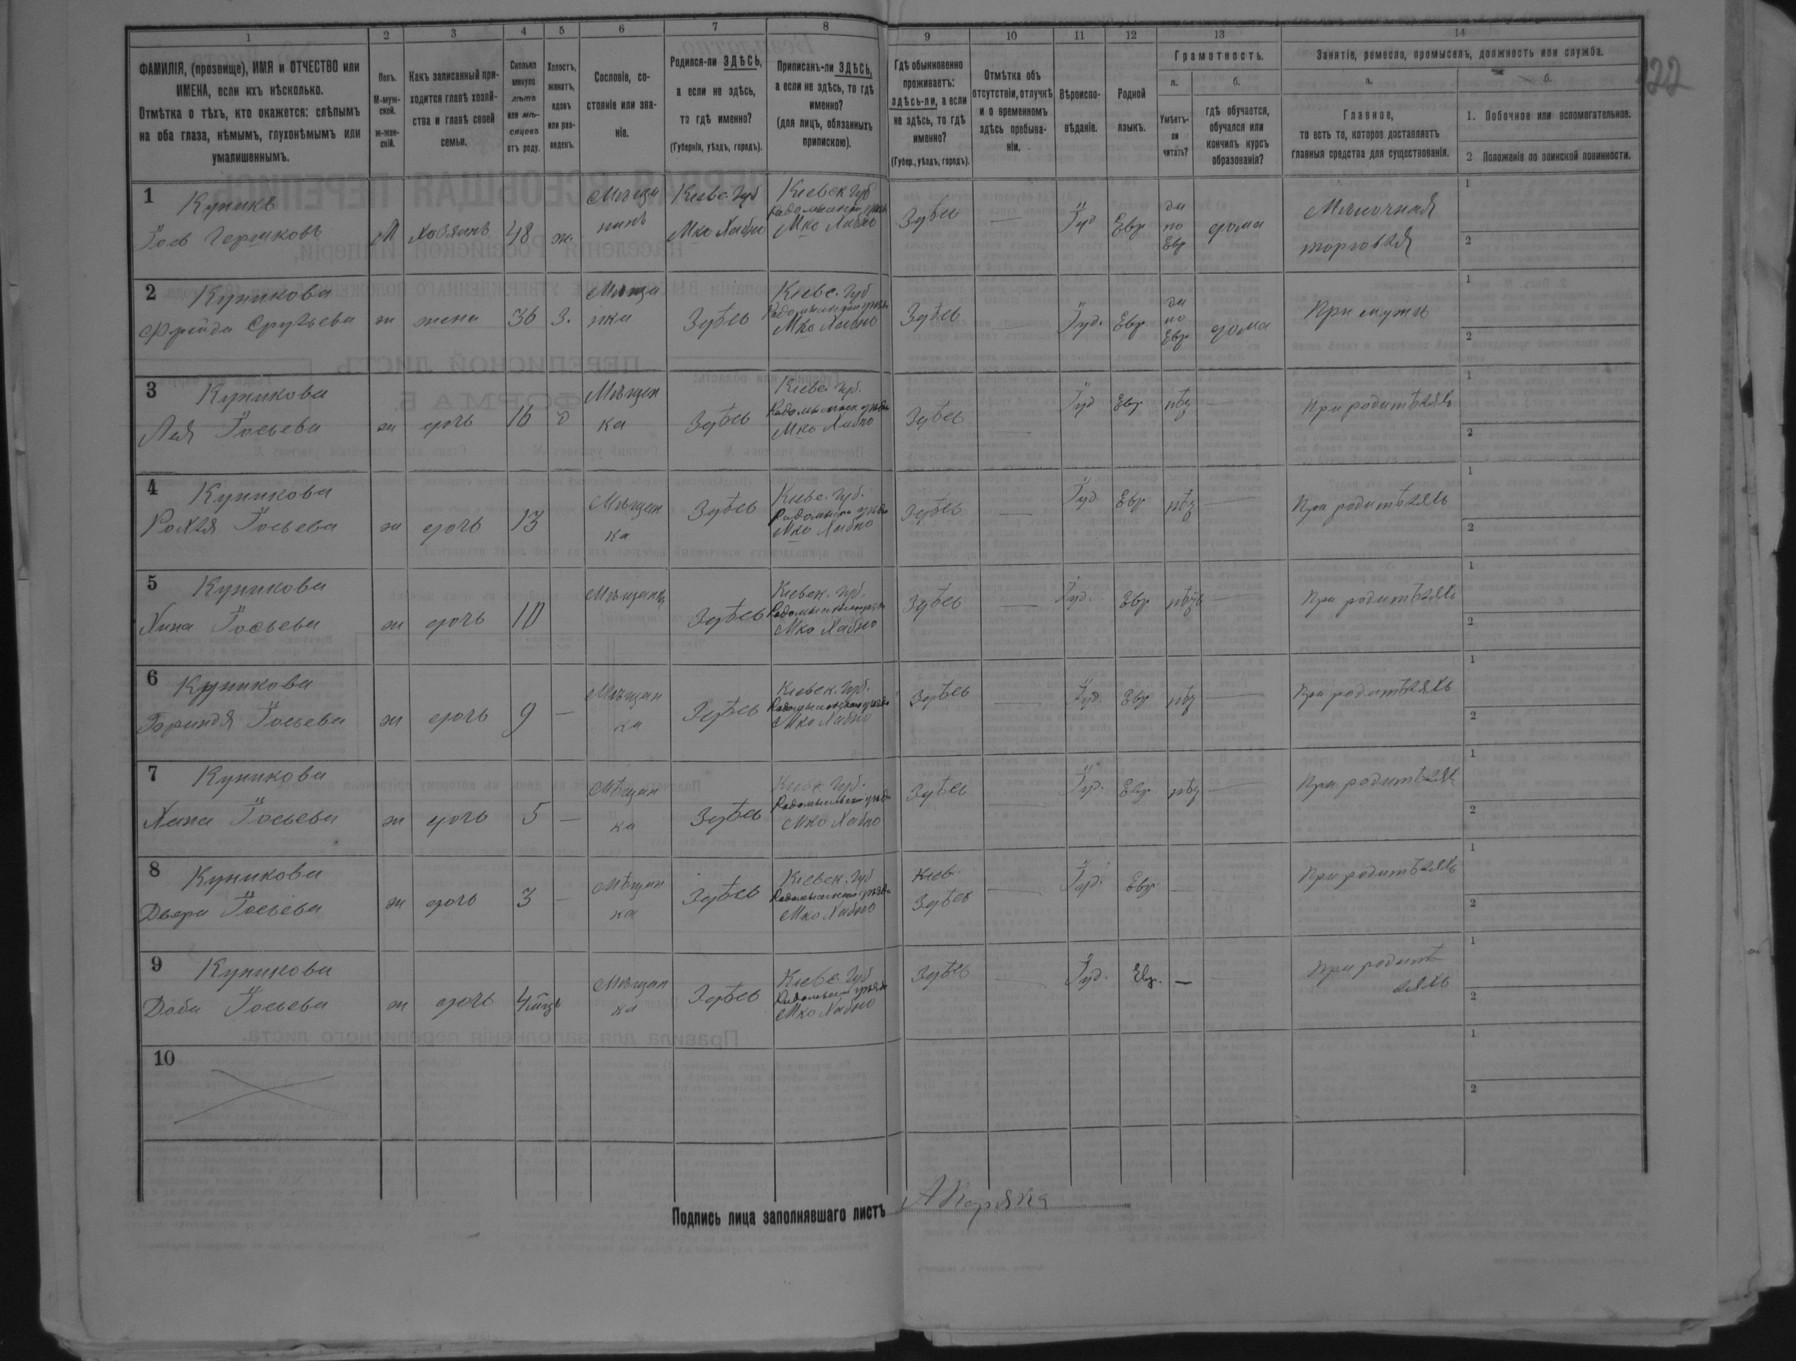 1 2 3 4 5 6 7 8 9 10 11 12 13 14
ФАМИЛІЯ, (прозвище), ИМЯ и ОТЧЕСТВО или
ИМЕНА, если ихъ нѣсколько.
Отмѣтка о тѣхъ, кто окажется: слѣпымъ
на оба глаза, нѣмымъ, глухонѣмымъ или
умалишеннымъ.
Полъ.
М-муж-
ской.
ж-жен-
скій.
Какъ записанный при-
ходится главѣ хозяй-
ства и главѣ своей
семьи.
Сколько
минуло
лѣтъ
или мѣ-
сяцевъ
отъ роду.
Холостъ,
женатъ,
вдовъ
или раз-
веденъ.
Сословіе, со-
стояніе или зва-
ніе.
Родился-ли ЗДѢСЬ,
а если не здѣсь,
то гдѣ именно?
(Губернія, уѣздъ, городъ).
Приписанъ-ли ЗДѢСЬ,
а если не здѣсь, то гдѣ
именно?
(для лицъ, обязанныхъ
припискою).
Гдѣ обыкновенно
проживаетъ:
здѣсь-ли, а если
не здѣсь, то гдѣ
именно?
(Губер., уѣздъ, городъ).
Отмѣтка объ
отсутствіи, отлучкѣ
и о временномъ
здѣсь пребыва-
ніи.
Вѣроиспо-
вѣданіе.
Родной
языкъ.
Грамотность.
а.
Умѣетъ-
ли
читать?
б.
гдѣ обучается,
обучался или
кончилъ курсъ
образованія?
Занятіе, ремесло, промыселъ, должность или служба.
а.
Главное,
то есть то, которое доставляетъ
главныя средства для существованія.
б.
1. Побочное или вспомогательное.
2 Положеніе по воинской повинности.
122
1 Куникъ
М Хозяинъ 48 ж. Мѣщанинъ
Кіевс. Губ
Мко Хабно
Кіевск. Губ
Мко Хабно
Здѣсь — Іуд Евр
да
по
Евр
дома
Мѣлочная
торговля
1
2
2 Куникова
Фрейда
ж жена 36 З. Мѣщанка Здѣсь
Кіевс. Губ
Мко Хабно
Здѣсь Іуд. Евр
да
по
Евр
дома
При мужѣ
1
2
3 Куникова
Лея Іосьева
ж дочь 16 д Мѣщанка Здѣсь
Кіевс. Губ.
Мко Хабно
Здѣсь — Іуд Евр нѣт — При родителяхъ
1
2
4 Куникова
Рохля Іосьева
ж дочь 13 Мѣщанка Здѣсь
Кіевс. Губ.
Мко Хабно
Здѣсь — Іуд Евр нѣт — При родителяхъ
1
2
5 Куникова
Хана Іосьева
ж дочь 10 Мѣщанка Здѣсь
Кіевск. Губ.
Мко Хабно
Здѣсь — Іуд. Евр нѣтъ — При родителяхъ
1
2
6 Куникова
Іосьева
ж дочь 9 — Мѣщанка Здѣсь
Кіевск. Губ.
Мко Хабно
Здѣсь — Іуд. Евр нѣт — При родителяхъ
1
2
7 Куникова
Іосьева
ж дочь 5 — Мѣщанка Здѣсь
Кіевс. Губ.
Мко Хабно
Здѣсь Іуд. Евр нѣт — При родителяхъ
1
2
8 Куникова
Двера Іосьева
ж дочь 3 — Мѣщанка Здѣсь
Кіевск. Губ
Мко Хабно
Здѣсь — Іуд. Евр — При родителяхъ
1
2
9 Куникова
Доба Іосьева
ж дочь Мѣщанка Здѣсь
Кіевс. Губ
Мко Хабно
Здѣсь — Іуд. Евр. — При родителяхъ
1
2
10
1
2
Подпись лица заполнявшаго листъ